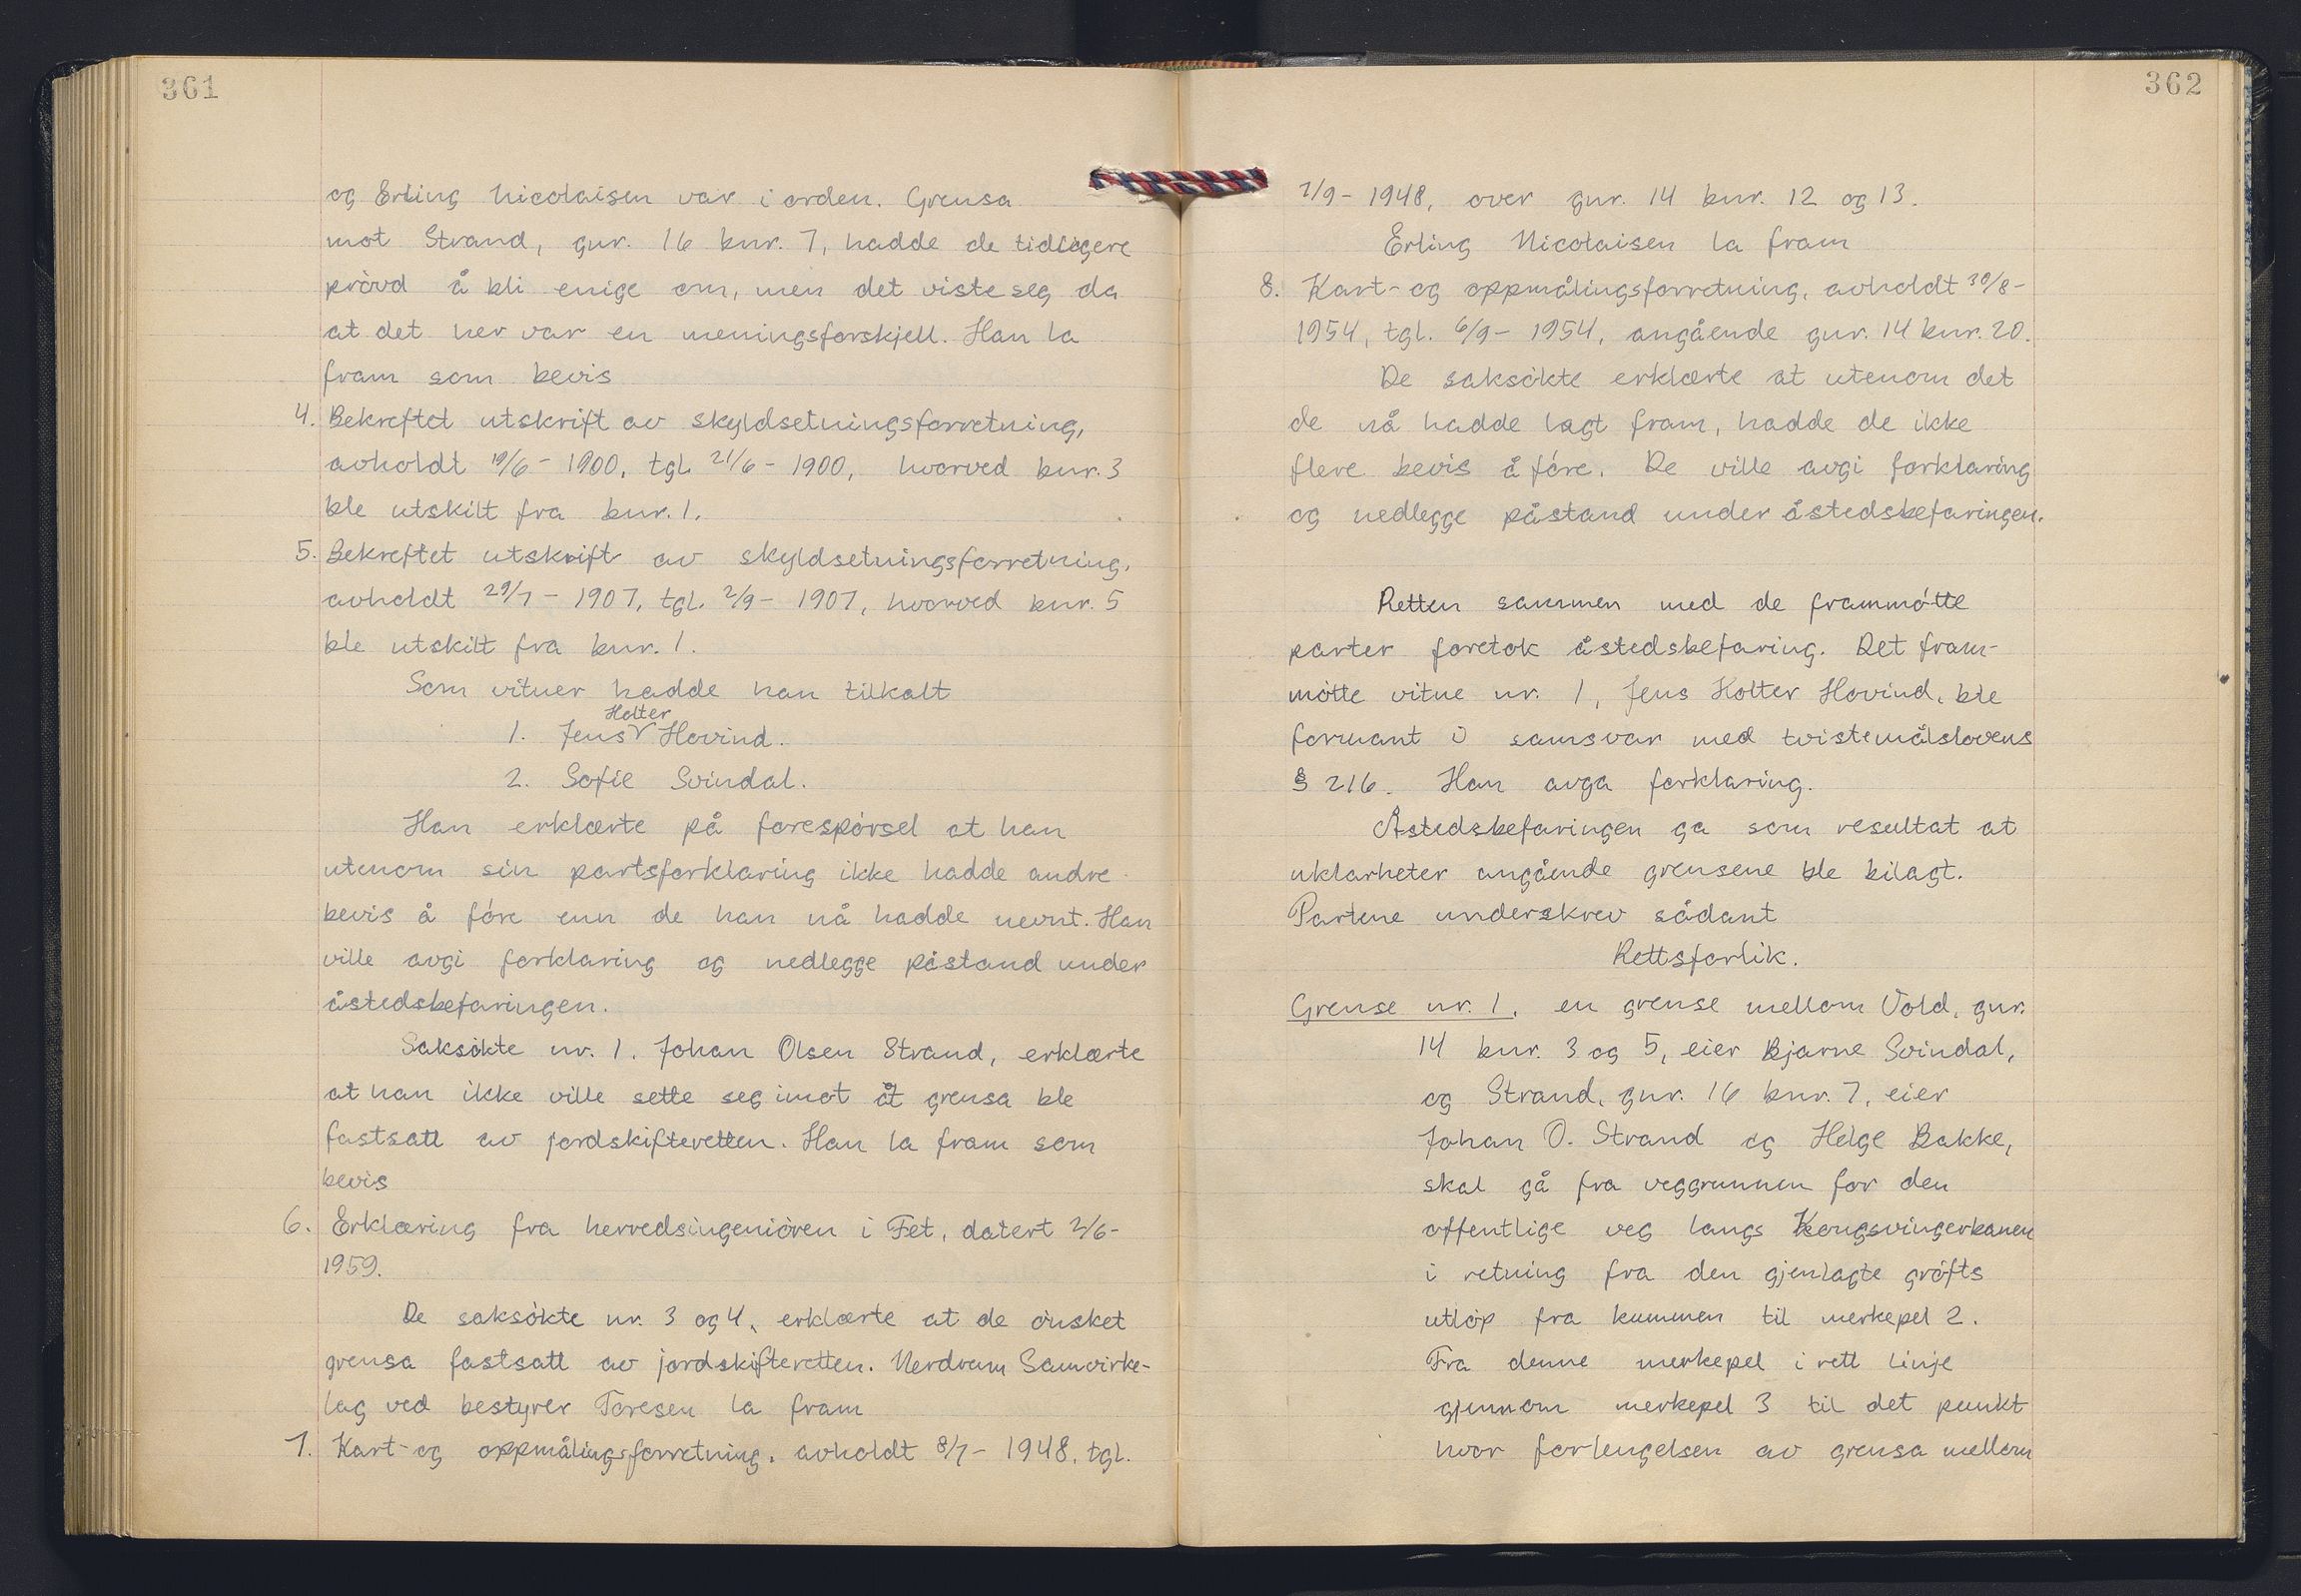 361
og Erling Nicolaisen var i orden. Grensa
mot Strand, gnr. 16 bnr. 7, hadde de tidligere
prövd å bli enige om, men det viste seg da
at det her var en meningsforskjell. Han la
fram som bevis
4. Bekreftet utskrift av skyldsetningsforretning,
avholdt 19/6 - 1900, tgl. 21/6 - 1900, hvorved bnr. 3
ble utskilt fra bnr. 1.
5. Bekreftet utskrift av skyldsetningsforretning,
avholdt 29/7 - 1907, tgl. 2/9 - 1907, hvorved bnr. 5
ble utskilt fra bnr. 1.
Som vitner hadde han tilkalt
Holter
1. Jens V Hovind.
2. Sofie Svindal.
Han erklærte på forespörsel at han
utenom sin partsforklaring ikke hadde andre
bevis å före enn de han nå hadde nevnt. Han
ville avgi forklaring og nedlegge påstand under
åstedsbefaringen.
Saksökte nr. 1. Johan Olsen Strand, erklærte
at han ikke ville sette seg imot at grensa ble
fastsatt av jordskifteretten. Han la fram som
bevis
6. Erklæring fra herredsingeniören i Fet, datert 2/6-
1959.
De saksökte nr. 3 og 4, erklærte at de önsket
grensa fastsatt av jordskifteretten. Nerdrum Samvirke-
lag ved bestyrer Toresen la fram
7. Kart- og oppmålingsforretning, avholdt 8/7 - 1948, tgl.
362
7/9 - 1948, over gnr. 14 bnr. 12 og 13.
Erling Nicolaisen la fram
8. Kart- og oppmålingsforretning, avholdt 30/8 -
1954, tgl. 6/9 - 1954, angående gnr. 14 bnr. 20.
De saksökte erklærte at utenom det
de nå hadde lagt fram, hadde de ikke
flere bevis å före. De ville avgi forklaring
og nedlegge påstand under åstedsbefaringen.
Retten sammen med de frammötte
parter foretok åstedsbefaring. Det fram-
mötte vitne nr. 1, Jens Holter Hovind, ble
formant i samsvar med tvistemålslovens
§ 216. Han avga forklaring.
Åstedsbefaringen ga som resultat at
uklarheter angående grensene ble bilagt.
Partene underskrev sådant
Rettsforlik.
Grense nr. 1, en grense mellom Vold, gnr.
14 bnr. 3 og 5, eier Bjarne Svindal,
og Strand, gnr. 16 bnr. 7, eier
Johan O. Strand og Helge Bakke,
skal gå fra veggrunnen for den
offentlige veg langs Kongsvingerbanen
i retning fra den gjenlagte gröfts
utlöp fra kummen til merkepel 2.
Fra denne merkepel i rett linje
gjennom merkepel 3 til det punkt
hvor forlengelsen av grensa mellom